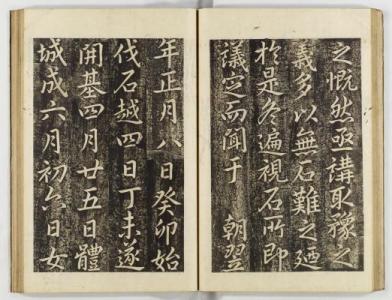 之慨然亟講取豫之
義多以無石難之廼
於是冬遍視石所即
議定而聞于　朝翌
年正月八日癸卯始
伐石越四日丁未遂
開基四月廿五日體
城成六月初六日女